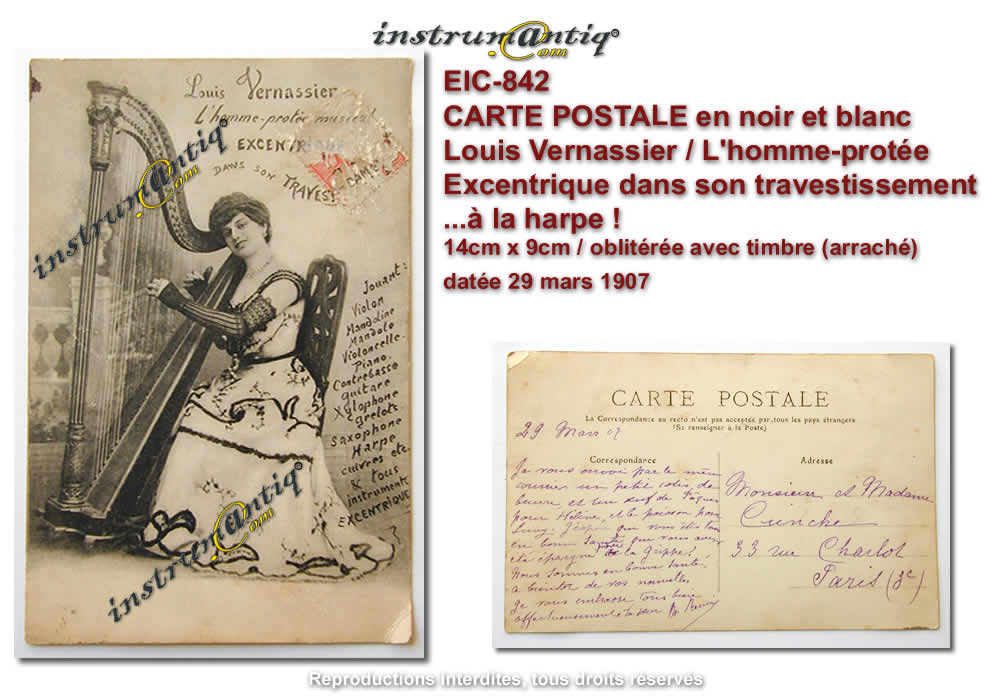 instrumantiq©
.com
EIC-842
CARTE POSTALE en noir et blanc
Louis Vernassier / L'homme-protée
Excentrique dans son travestissement
...à la harpe !
14cm x 9cm / oblitérée avec timbre (arraché)
datée 29 mars 1907
Louis Vernassier
L'homme-protée musical
EXCENTRIQUE
DANS SON TRAVEST
Jouant:
Violon
Mandoline
Mandole
Violoncelle
Piano
Contrebasse
guitare
Xylophone
Grelots
Saxophone
Harpe
cuivres etc.
& tous
instruments
EXCENTRIQUE
instrumantiq©
.com
instrumantiq©
.com
CARTE POSTALE
La Correspondance au recto n'est pas acceptée par tous les pays étrangers
(Se renseigner à la Poste)
29 Mars 07
Correspondance
Adresse
Je vous envoi par le même
courrier un petit colis de
beurre et un œuf de Pâques
pour Hélène, et le poisson pour
que vous
en bonne santé que vous avez
été épargné de la grippe!
Nous sommes en bonne santé
de vos nouvelles
Je vous embrasse tous bien
affectueusement
Monsieur et Madame
33 rue Charlot
Paris (3e)
Reproductions interdites, tous droits réservés